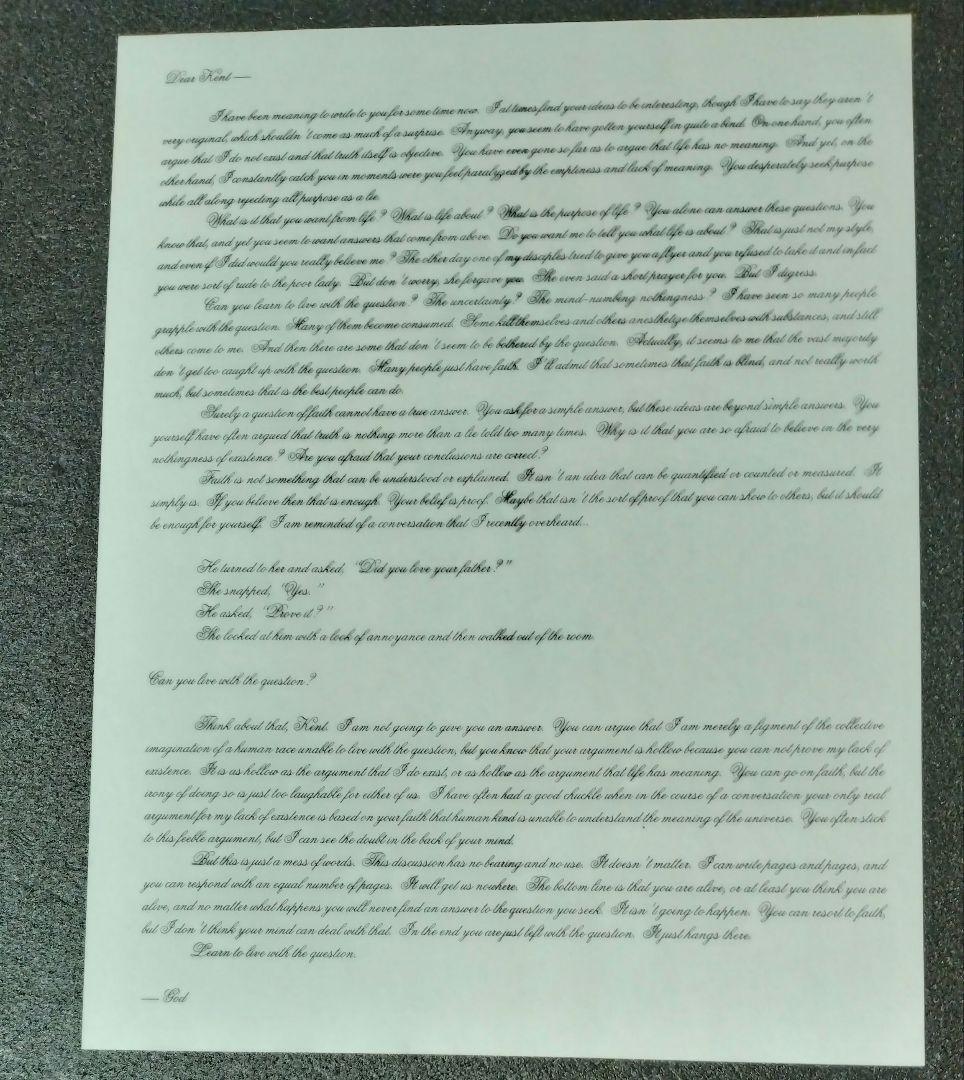 Dear Kent —
I have been meaning to write to you for some time now. I at times find your ideas to be interesting, though I have to say they aren't
very original, which shouldn't come as much of a surprise. Anyway, you seem to have gotten yourself in quite a bind. On one hand, you often
argue that I do not exist and that truth itself is objective. You have even gone so far as to argue that life has no meaning. And yet, on the
other hand, I constantly catch you in moments were you feel paralyzed by the emptiness and lack of meaning. You desperately seek purpose
while all along rejecting all purpose as a lie.
What is it that you want from life? What is life about? What is the purpose of life? You alone can answer these questions. You
know that, and yet you seem to want answers that come from above. Do you want me to tell you what life is about? That is just not my style,
and even if I did would you really believe me? The other day one of my disciples tried to give you a flyer and you refused to take it and in fact
you were sort of rude to the poor lady. But don't worry, she forgave you. She even said a short prayer for you. But I digress.
Can you learn to live with the question? The uncertainty? The mind-numbing nothingness? I have seen so many people
grapple with the question. Many of them become consumed. Some kill themselves and others anesthetize themselves with substances, and still
others come to me. And then there are some that don't seem to be bothered by the question. Actually, it seems to me that the vast majority
don't get too caught up with the question. Many people just have faith. I'll admit that sometimes that faith is blind, and not really worth
much, but sometimes that is the best people can do.
Surely a question of faith cannot have a true answer. You ask for a simple answer, but these ideas are beyond simple answers. You
yourself have often argued that truth is nothing more than a lie told too many times. Why is it that you are so afraid to believe in the very
nothingness of existence? Are you afraid that your conclusions are correct?
Faith is not something that can be understood or explained. It isn't an idea that can be quantified or counted or measured. It
simply is. If you believe then that is enough. Your belief is proof. Maybe that isn't the sort of proof that you can show to others, but it should
be enough for yourself. I am reminded of a conversation that I recently overheard...
He turned to her and asked, "Did you love your father?"
She snapped, "Yes."
He asked, "Prove it?"
She looked at him with a look of annoyance and then walked out of the room.
Can you live with the question?
Think about that, Kent. I am not going to give you an answer. You can argue that I am merely a figment of the collective
imagination of a human race unable to live with the question, but you know that your argument is hollow because you can not prove my lack of
existence. It is as hollow as the argument that I do exist, or as hollow as the argument that life has meaning. You can go on faith, but the
irony of doing so is just too laughable for either of us. I have often had a good chuckle when in the course of a conversation your only real
argument for my lack of existence is based on your faith that human kind is unable to understand the meaning of the universe. You often stick
to this feeble argument, but I can see the doubt in the back of your mind.
But this is just a mess of words. This discussion has no bearing and no use. It doesn't matter. I can write pages and pages, and
you can respond with an equal number of pages. It will get us nowhere. The bottom line is that you are alive, or at least you think you are
alive, and no matter what happens you will never find an answer to the question you seek. It isn't going to happen. You can resort to faith,
but I don't think your mind can deal with that. In the end you are just left with the question. It just hangs there.
Learn to live with the question.
— God